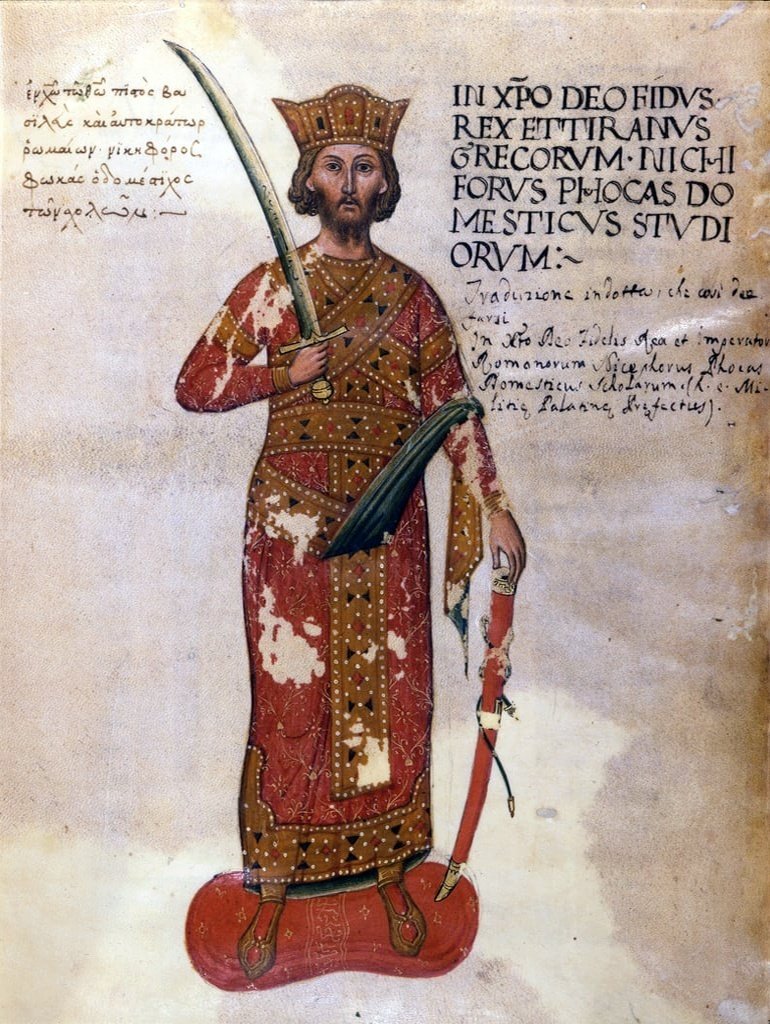 ἐν χ̅ω̅ τῶ θ̅ω̅ πιστὸς βα
σιλεὺς καὶ αὐτοκράτωρ
ῥωμαίων· νικηφόρος
φωκάς ὁ δομέστιχος
τῶν σχολῶν :~
IN XP̅O DEO FIDVS·
REX ET TIRANVS
GRECORVM· NICHI
FORVS PHOCAS DO
MESTICVS STVDI
ORVM:~
Traduzione indotta, che così dee
farsi
In X̅to Deo Fidelis Rex et Imperator
Romanorum Nicephorus Phocas
Domesticus Scholarum (h. e. Mi-
litię Palatinę Pręfectus).